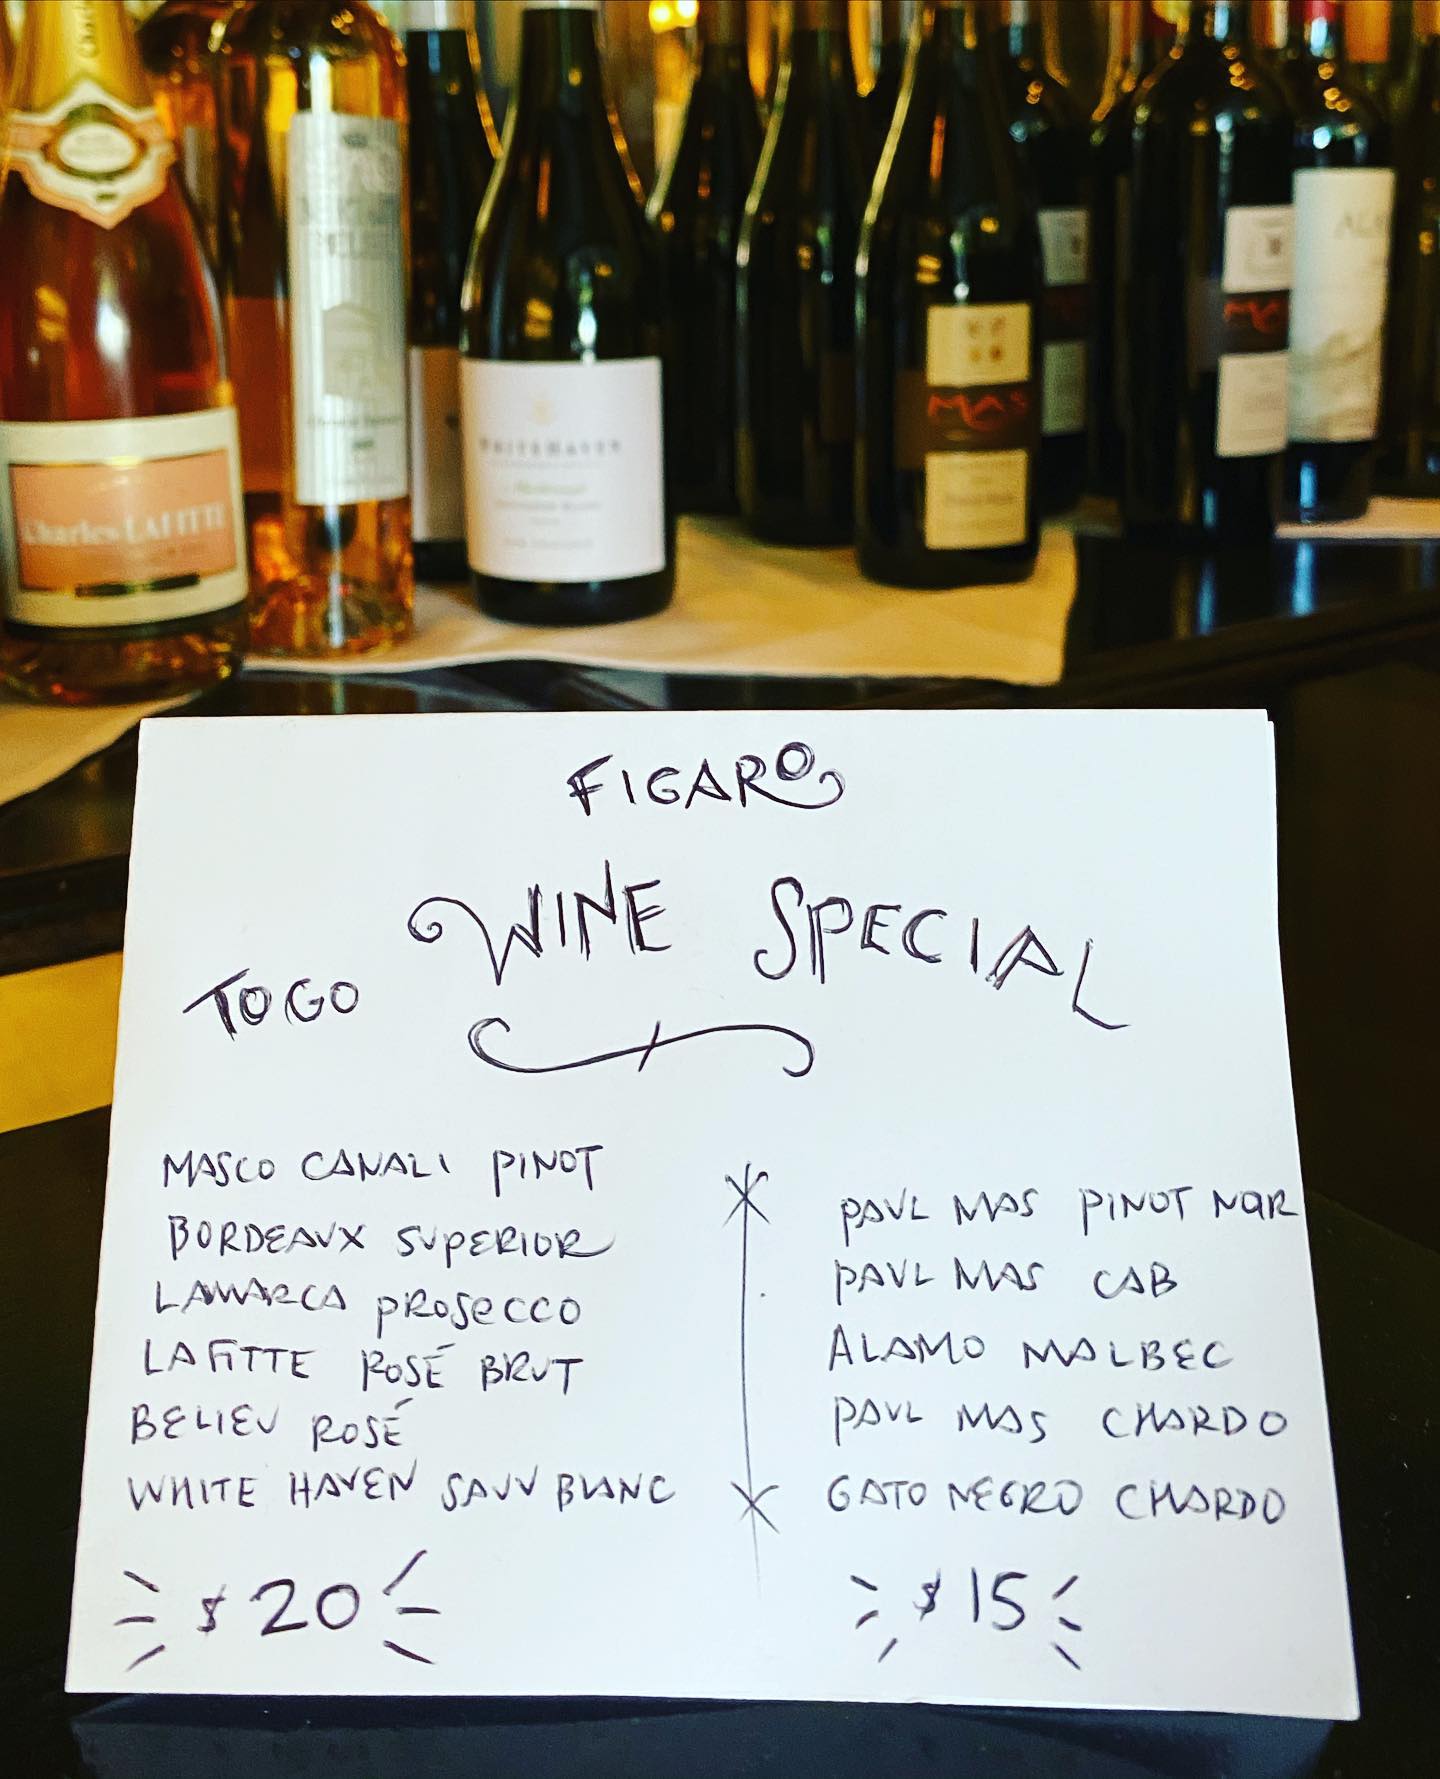 Charles LAFITTE
WHITEHAVEN
MAS
MAS
FIGARO
WINE SPECIAL
TOGO
MASCO CANALI PINOT
BORDEAUX SUPERIOR
LAMARCA PROSECCO
LAFITTE ROSÉ BRUT
BELIEV ROSÉ
WHITE HAVEN SAUV BLANC
$20
PAUL MAS PINOT NOIR
PAUL MAS CAB
ALAMO MALBEC
PAUL MAS CHARDO
GATO NEGRO CHARDO
$15